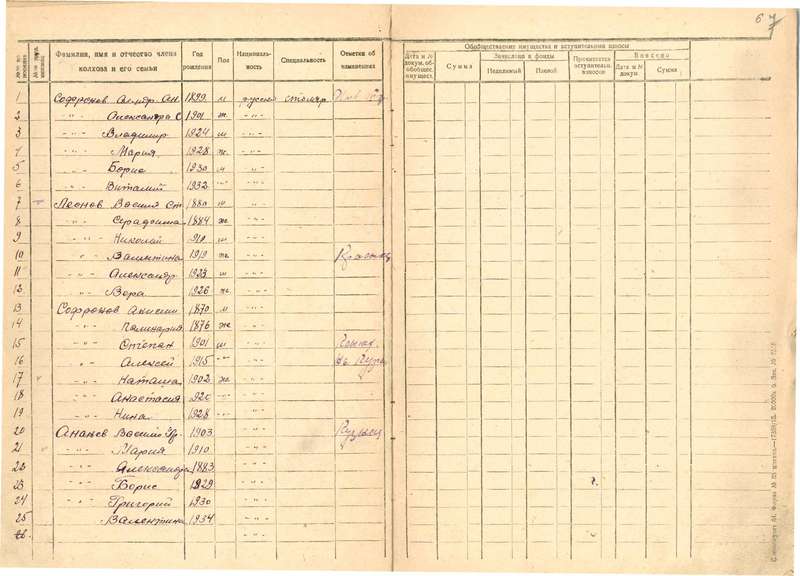 6 7
№№ по
Фамилия, имя и отчество члена колхоза и его семьи
Год рождения
Пол
Националь-ность
Специальность
Отметка об изменениях
1 Софронов Ал-др Ан. 1899 м русский столяр
2 -"- Александра С 1901 ж -"-
3 -"- Владимир 1924 м -"-
4 -"- Мария 1928 ж -"-
5 -"- Борис 1930 м -"-
6 -"- Виталий 1932 -"- -"-
7 Леонов Василий Ст 1880 м -"-
8 -"- 1884 ж -"-
9 -"- Николай м -"-
10 -"- Валентина 1919 ж -"-
11 -"- Александр 1923 м -"-
12 -"- Вера 1926 ж -"-
13 Софронов Анисим 1870 м -"-
14 -"- 1876 ж -"-
15 -"- Степан 1901 м -"-
16 -"- Алексей 1915 -"- -"-
17 -"- Наташа 1902 ж -"-
18 -"- Анастасия -"- -"-
19 -"- Нина 1928 -"- -"-
20 Ананьев Василий 1903 -"-
21 -"- Мария 1910 -"-
22 -"- Александра 1883 -"-
23 -"- Борис 1929 -"-
24 -"- Григорий 1930 -"-
25 -"- Валентина 1934 -"-
26.
Обобществление имущества и вступительные взносы
Дата и № докум. об обобществ. имуществ.
Сумма
Зачислено в фонды
Неделимый
Паевой
Причитается вступительных взносов
Внесено
Дата и № докум.
Сумма